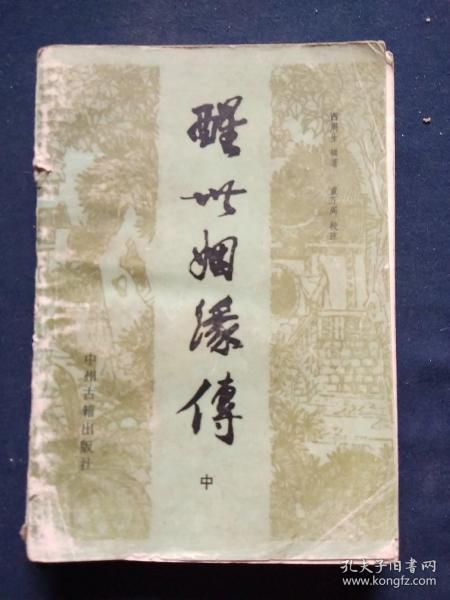 醒世姻緣傳
中
西周生 輯著 童万周 校註
中州古籍出版社
孔夫子旧书网
www.kongfz.com